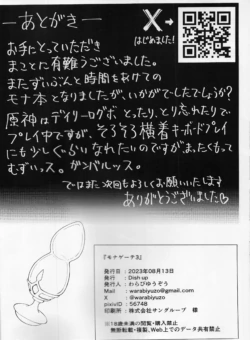 ―あとがき―
X→
はじめました!
お手にとっていただき
まことに有難うございました。
またずいぶんと時間をあけての
モナ本となりましたが、いかがでしたでしょうか?
原神はデイリーログボとったり、とり忘れたりで
プレイ中ですが、そろそろ横着キーボードプレイ
にも少しぐらいなれたいのですがま、たくもって
むずいっス。ガンバルッス。
ではまた次回もよろしくお願いいたします
ありがとうございました♡
『モナザーデ3』
発行日:2023年08月13日
発行:Dish up
発行人:わらびゆうぞう
Mail:warabiyuzo@gmail.com
X:@warabiyuzo
pixivID:56748
印刷所:株式会社サングループ 様
※18歳未満の閲覧・購入禁止
無断転載・複製、Web上でのデータ共有禁止